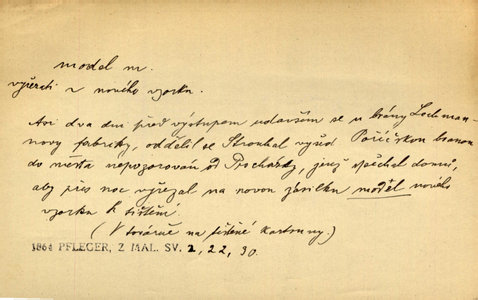 model m.
vyřezati z nového vzorku.
Asi dva dni před výstupem udavším se u brány Lochman-
novy fabriky, oddělil se Strouhal vyšed Poříčskou branou
do města nepozorován od Procházky, jenž spěchal domů,
aby přes noc vyřezal na novou zásilku model nového
vzorku k tištění.
(V továrně na tištěné kartouny.)
1864 PFLEGER, Z MAL. SV. 2, 22, 30.